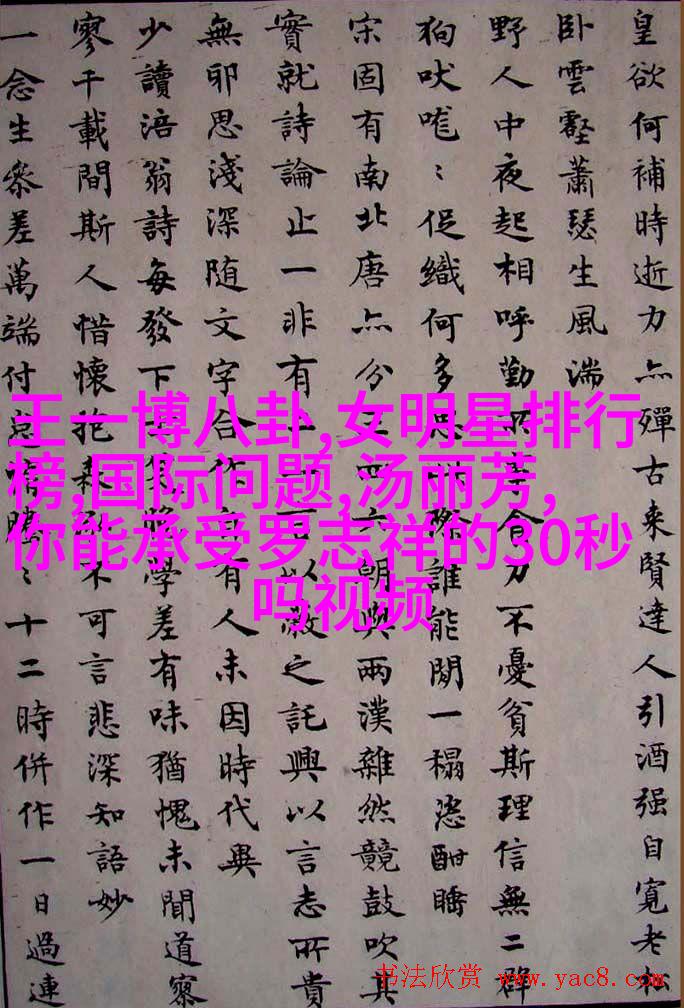 皇欲何補時逝力亦殫古来賢達人引酒强自寬老
卧雲壑蕭瑟生風湍
野人中夜起相呼勤合力不憂貧斯理信無二群
狗吠〻促織何多際誰能閙一榻恣酣睡
宋固有南北唐亦分四六朝與兩漢雜然競鼓吹其
實就詩論止一非有二言以蔽之託興以言志所貴
無邪思淺深随文字合作有人未因時代異
少讀涪翁詩每發下學差有味猶愧未聞道察
寥千載間斯人惜懷抱不可言悲深知語妙
一念生參差萬端付〻十二時併作一日過連
王一博八卦,女明星排行
榜,国际问题,汤丽芳,
你能承受罗志祥的30秒
吗视频
书法欣赏 www.yac8.com